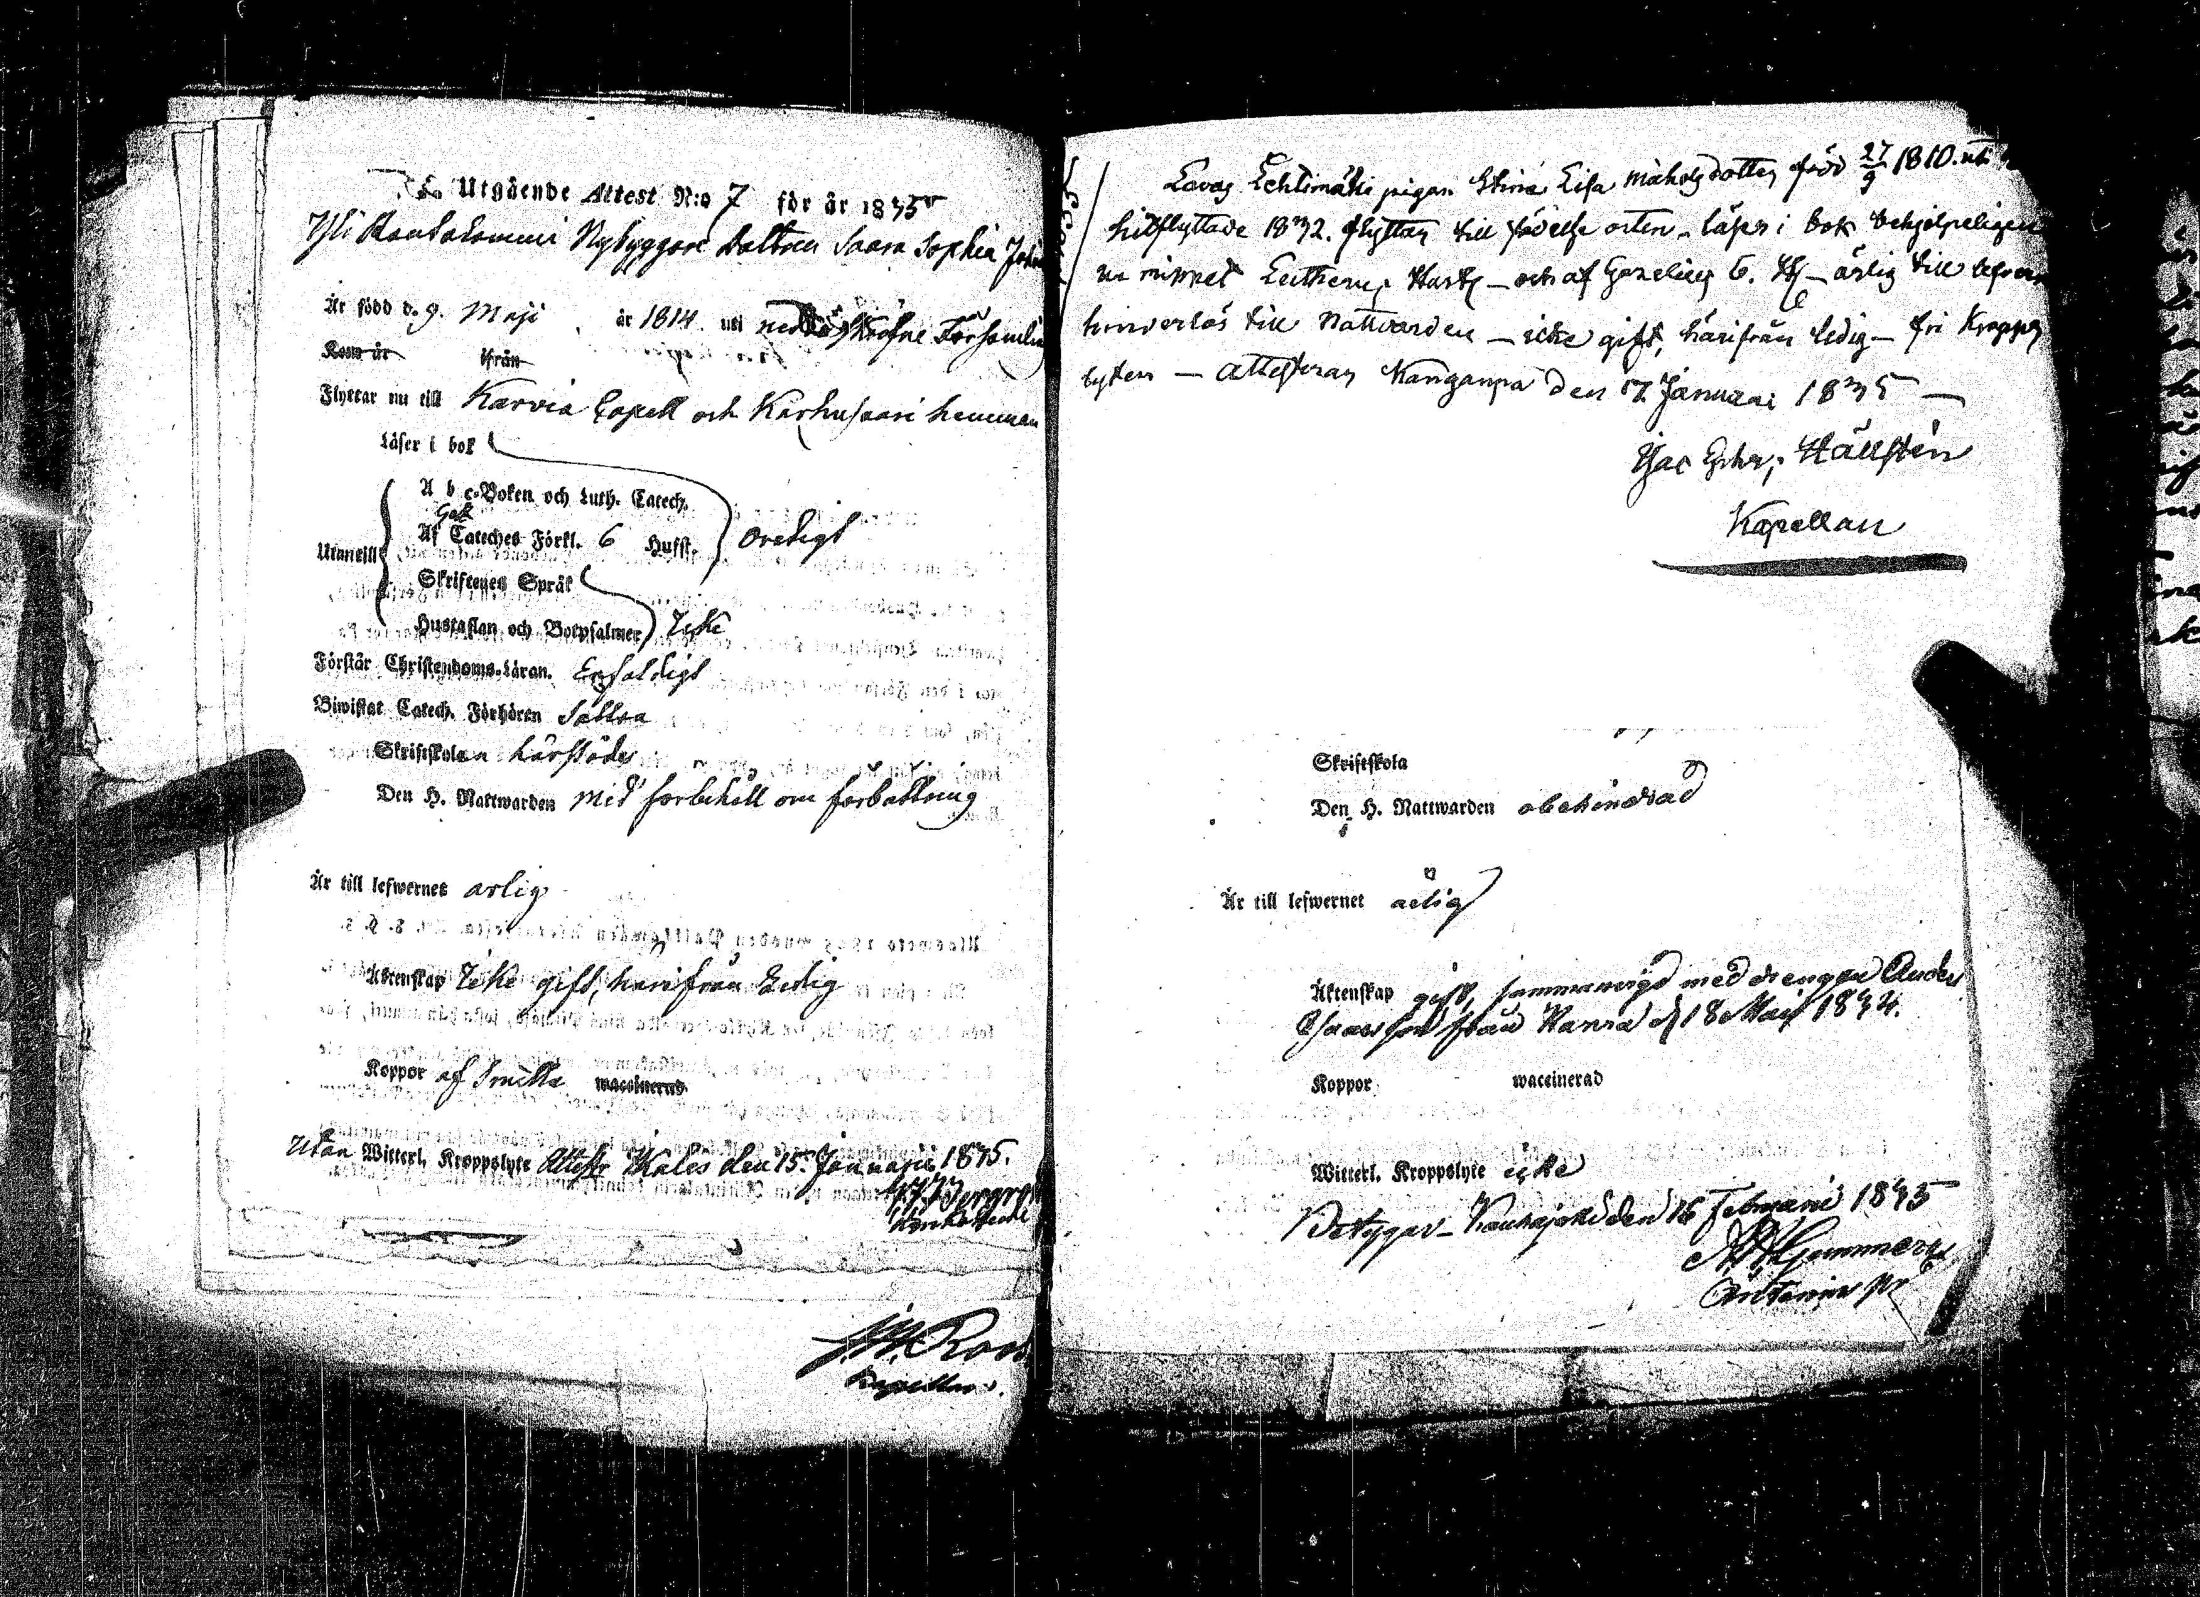 Utgående Attest N:o 7 för år 1835
Yli Rautakommi Nybyggare Dottren Saara Sophia
Är född d. 9. Maji år 1814 uti
Kom år ifrån
Flyttar nu till Karvia Capell och Karhusaari hemman
Läser i bok
A b c-Boken och Luth. Catech.
Utantill Af Gez. Cateches Förkl. 6 Hufst. oredigt
Skriftenes Språk
Hustaflan och Botpsalmer Icke
Förstår Christendoms-Läran. Enfaldigt
Biwistat Catech. Förhören Sällan
Skriftskolan härstädes
Den H. Nattwarden med förbehåll om förbättring
Är till lefwernet ärlig
Äktenskap Icke gift, härifrån Ledig
Koppor af Smitta waccinerad
Utan Witterl. Kroppslyte Attestr. den 15. Januarii 1835.
J. M. Roos
Kapellan.
Lovas Lehtimäki pigan Stina Lisa född 27/9 1810. uti
hitflyttade 1832. flyttar till födelse orten - läser i bok behjelpeligen
ur minnet Lutherus - och af Gezelius 6. H - ärlig till
hinderlös till Nattvarden - icke gift, härifrån ledig - fri Kropps
lyten - attesteras Kangaspä den 17 Januari 1835 -
Isac Hällstén
Kapellan
Skriftskola
Den H. Nattwarden obehindrad
Är till lefwernet ärlig
Äktenskap gift, sammanvigd med drengen Anders
Isaacsson från d 18 Maij 1834.
Koppor waccinerad
Witterl. Kroppslyte icke
Betygar - Kauhajoki den 16 Februarii 1835